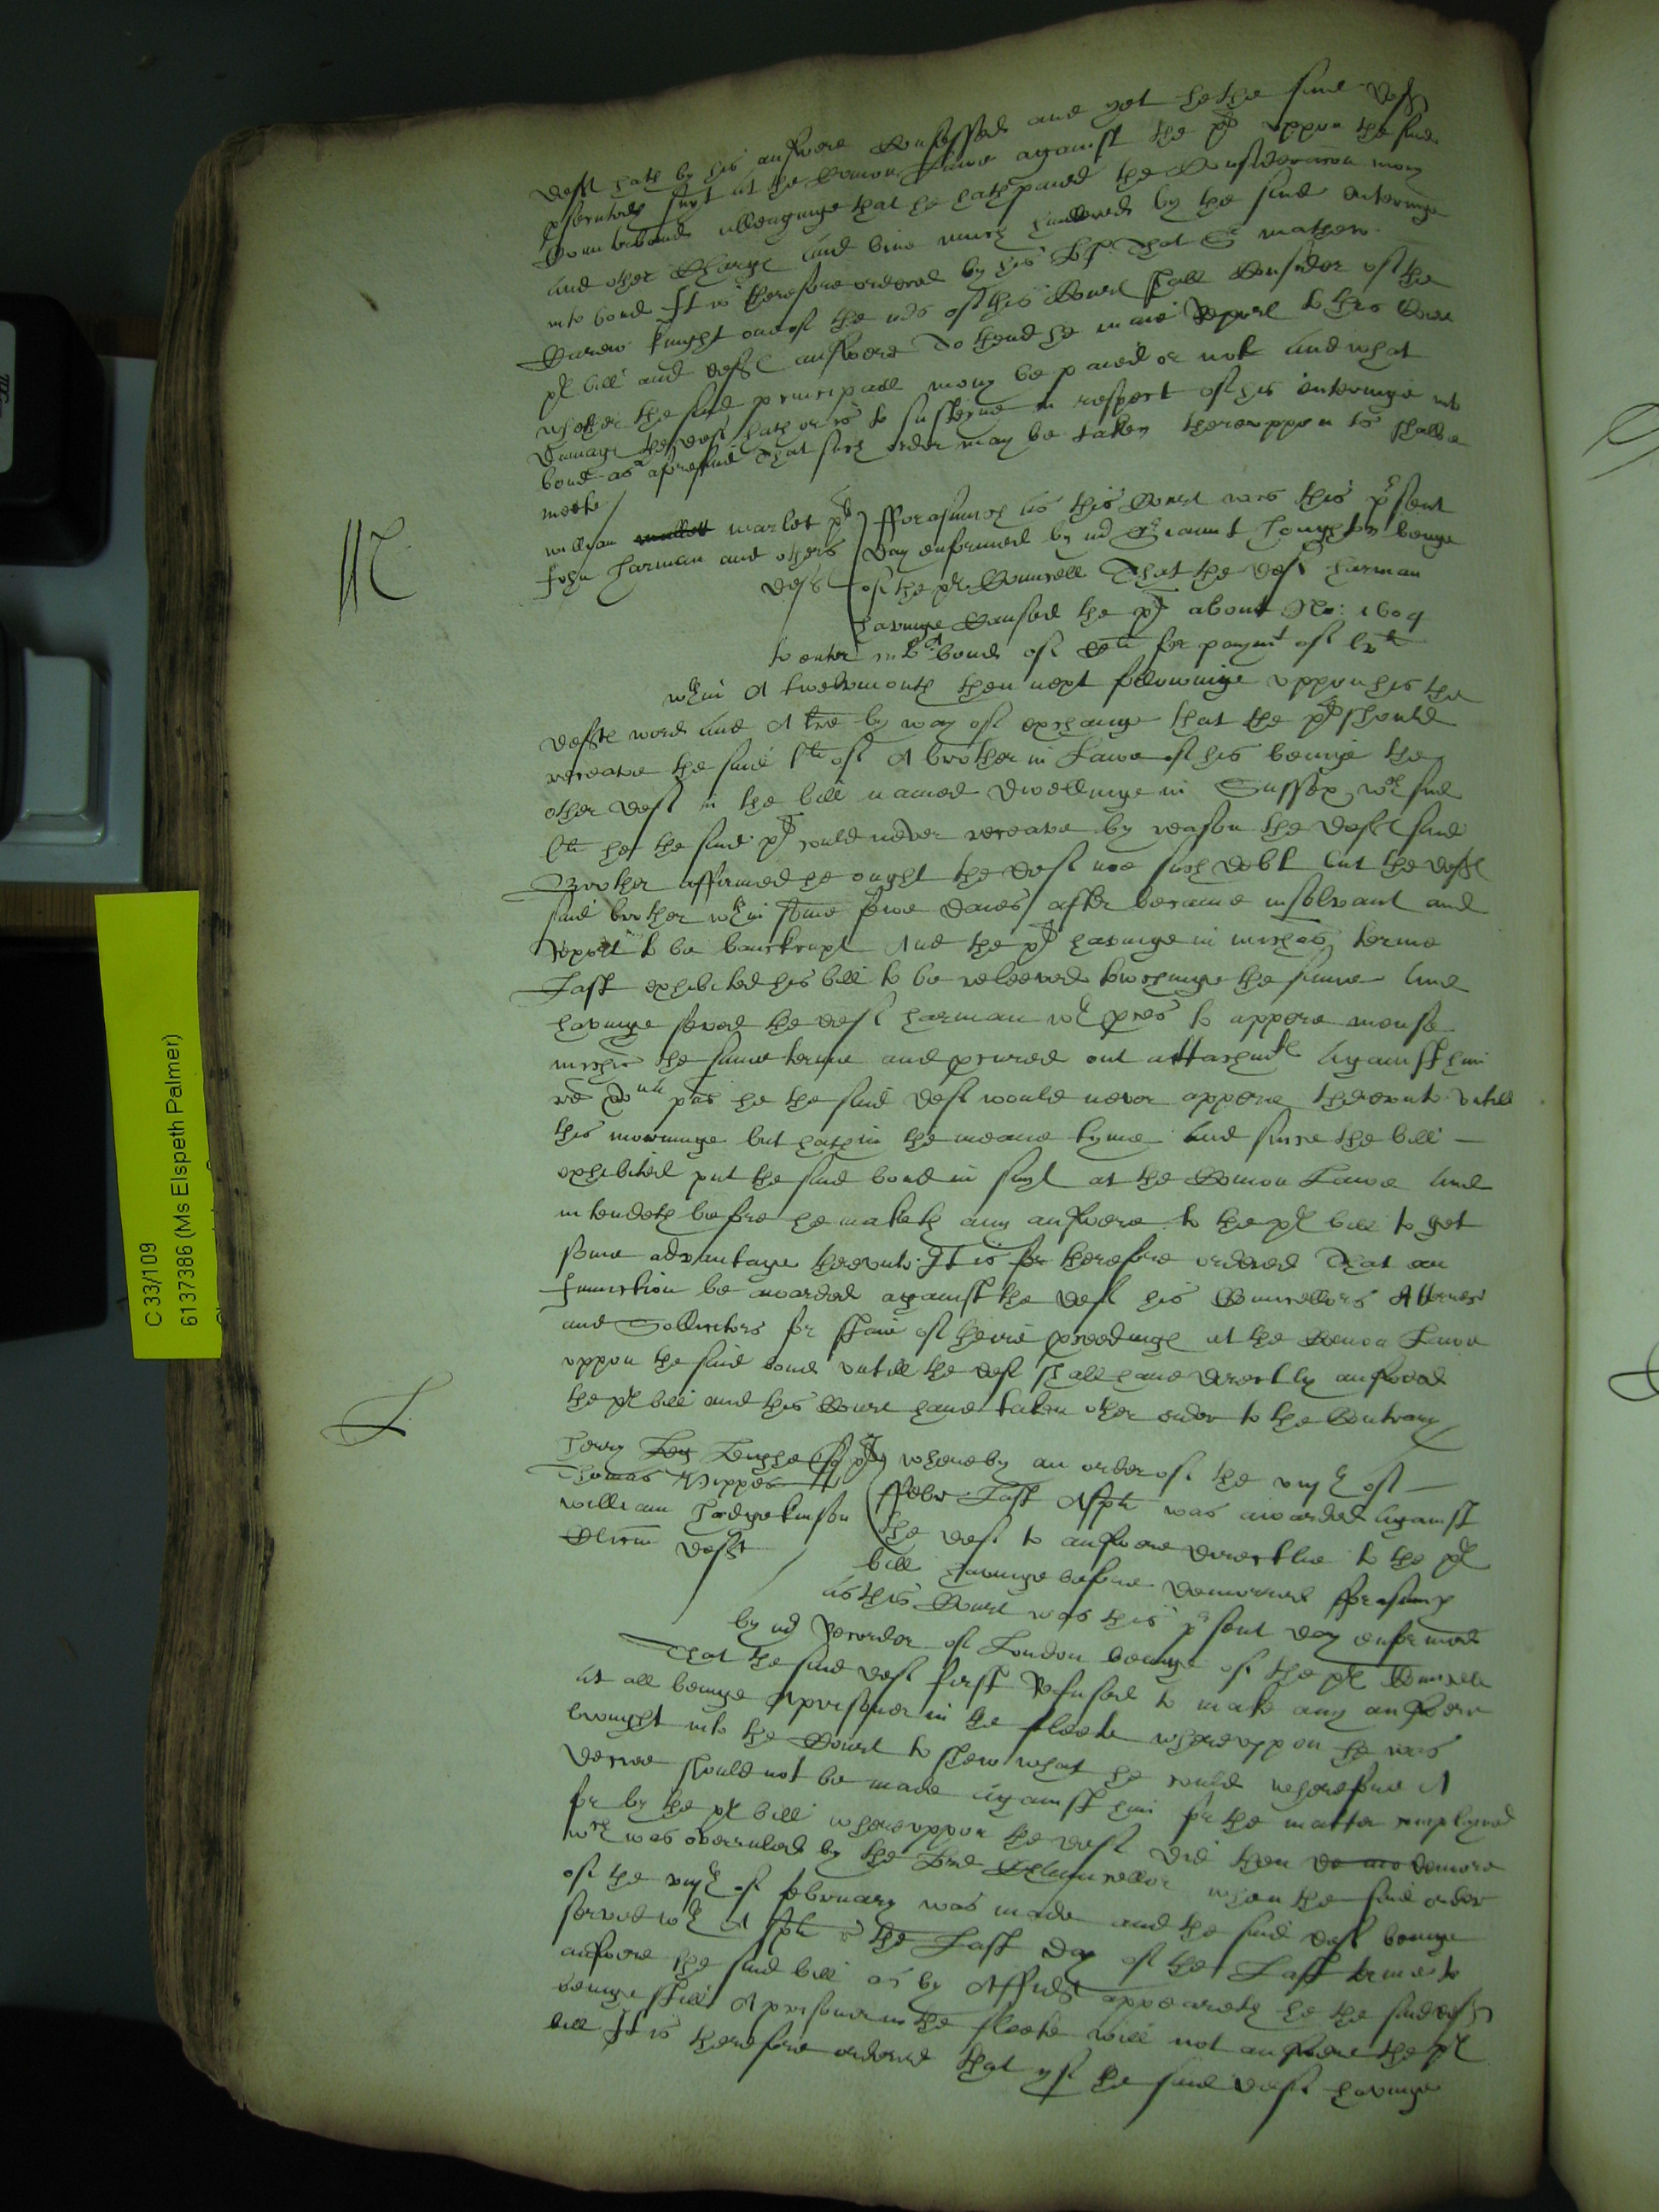 deft hath by his answere Confessed and yet he the said deft
psecuteth suyt at the Comon Lawe against the plt uppon the said
Counterbond alleaginge that he hath paied the Consideracon mony
and other Charge and bine much hindered by the said enteringe
into bond It is therefore ordered by his Lp That Sr mathew
Carew knight one of the mrs of this Court shall Consider of the
pl bill and defts answere To thend he maie Report to this Court
whether the said principall mony be paied or not and what
damage the deft hath or is to susteine in respect of his enteringe into
bond as aforesaid That such order may be taken thereuppon as shalbe
meete
M
willyam warlet plt
John Harman and others
defts
fforasmuch as this Court was this psent
day enformed by mr Seriaunt Houghton beinge
of the pl Counsell That the deft Harman
havinge Caused the plt about Ao: 1604
to enter into a bond of Cli for paymt of lvli
wthin A twelvmonth then next followinge uppon his the
defts word and A lre by way of exchange that the plt should
receave the said lli of A brother in Lawe of his beinge the
other deft in the bill named dwellinge in Sussex wch said
lli he the said plt could never receave by reason the defts said
Brother affirmed he ought the deft noe such debt but the defts
said brother wthin some fewe daies after became insolvant and
Report to be banckrupt And the plt havinge in michas terme
Last exhibited his bill to be releeved towchinge the same and
havinge served the deft harman wth pces to appere mense
michis the same terme and procured out attachmts against him
he the said deft would never appere thereunto untill
this morninge but hath in the meane tyme and since the bill
exhibited put the said bond in suyt at the Comon Lawe and
intendeth before he maketh any answere to the pl bill to get
some advantage thereunto. It is therefore ordered That an
Iniunction be awarded against the deft his Counsellors Attorneis
and Sollicitors for staie of theire proceedings at the Comon Lawe
uppon the said bond untill the deft shall have directly answered
the pl bill and this Court have taken other order to the Contrary
L
Henry Leighe plt
Thomas Nippes
william Hodgekinson
defts
whereby an order of the viijth of
ffebr Last A spa was awarded against
the deft to answere directlie to the pl
bill havinge before demurred fforasmuch
as this Court was this psent day enformed
by mr Recorder of London beinge of the pl Counsell
That the said deft first Refused to make any answere
at all beinge A prisoner in the fleete whereuppon he was
brought into the Court to shew what he could wherefore A
decree should not be made against him for the matter complayned
for by the pl bill whereuppon the deft did then demurre
wch was overruled by the Lord Chauncellor when the said order
of the viijth of february was made and the said deft beinge
served wth A spa the Last day of the Last terme to
answere the said bill as by Affidt appeareth he the said deft
beinge still A prisoner in the fleete will not answere the pl
bill It is therefore ordered that yf the said deft havinge
C 33/109
6137386 (Ms Elspeth Palmer)